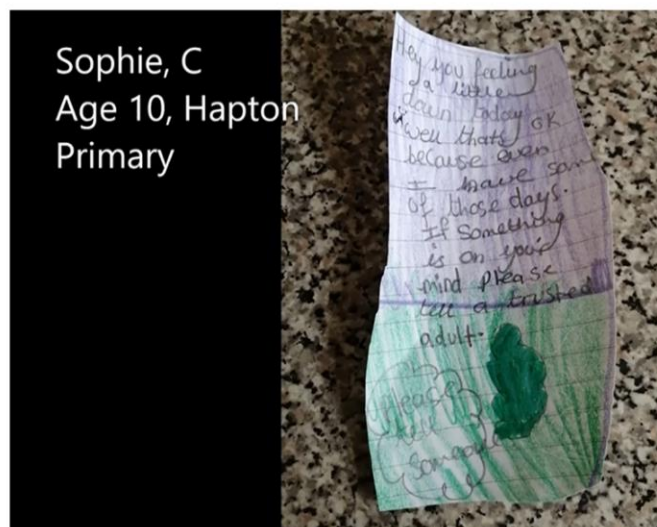 Sophie, C
Age 10, Hapton
Primary
Hey you feeling
a little
down today
well thats ok
because even
I have som
of those days.
If something
is on your
mind please
tell a trusted
adult.
Please
tell
someone